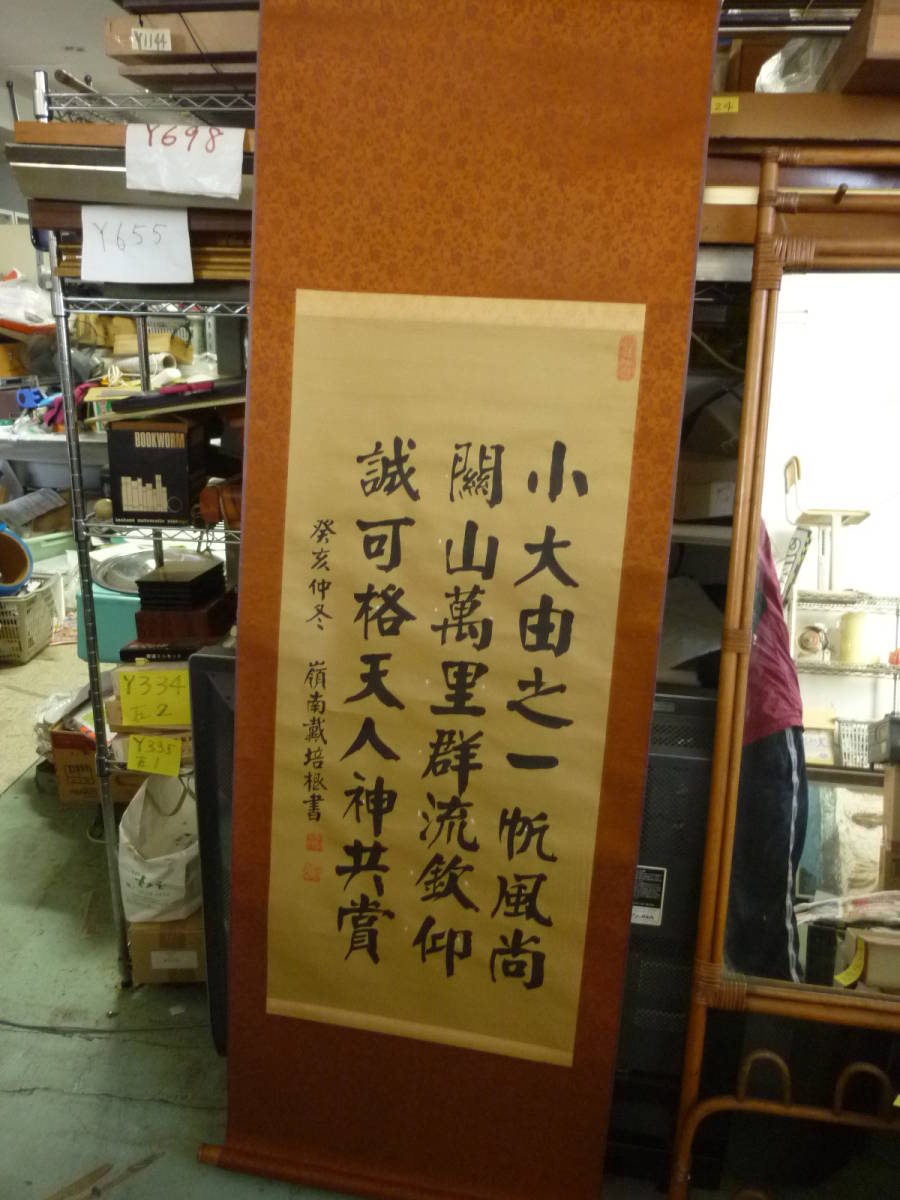 小大由之一帆風尚
關山萬里群流欽仰
誠可格天人神共賞
癸亥仲冬 嶺南戴培根書
Y1144
Y698
Y655
24
BOOKWORM
Y334
Y335